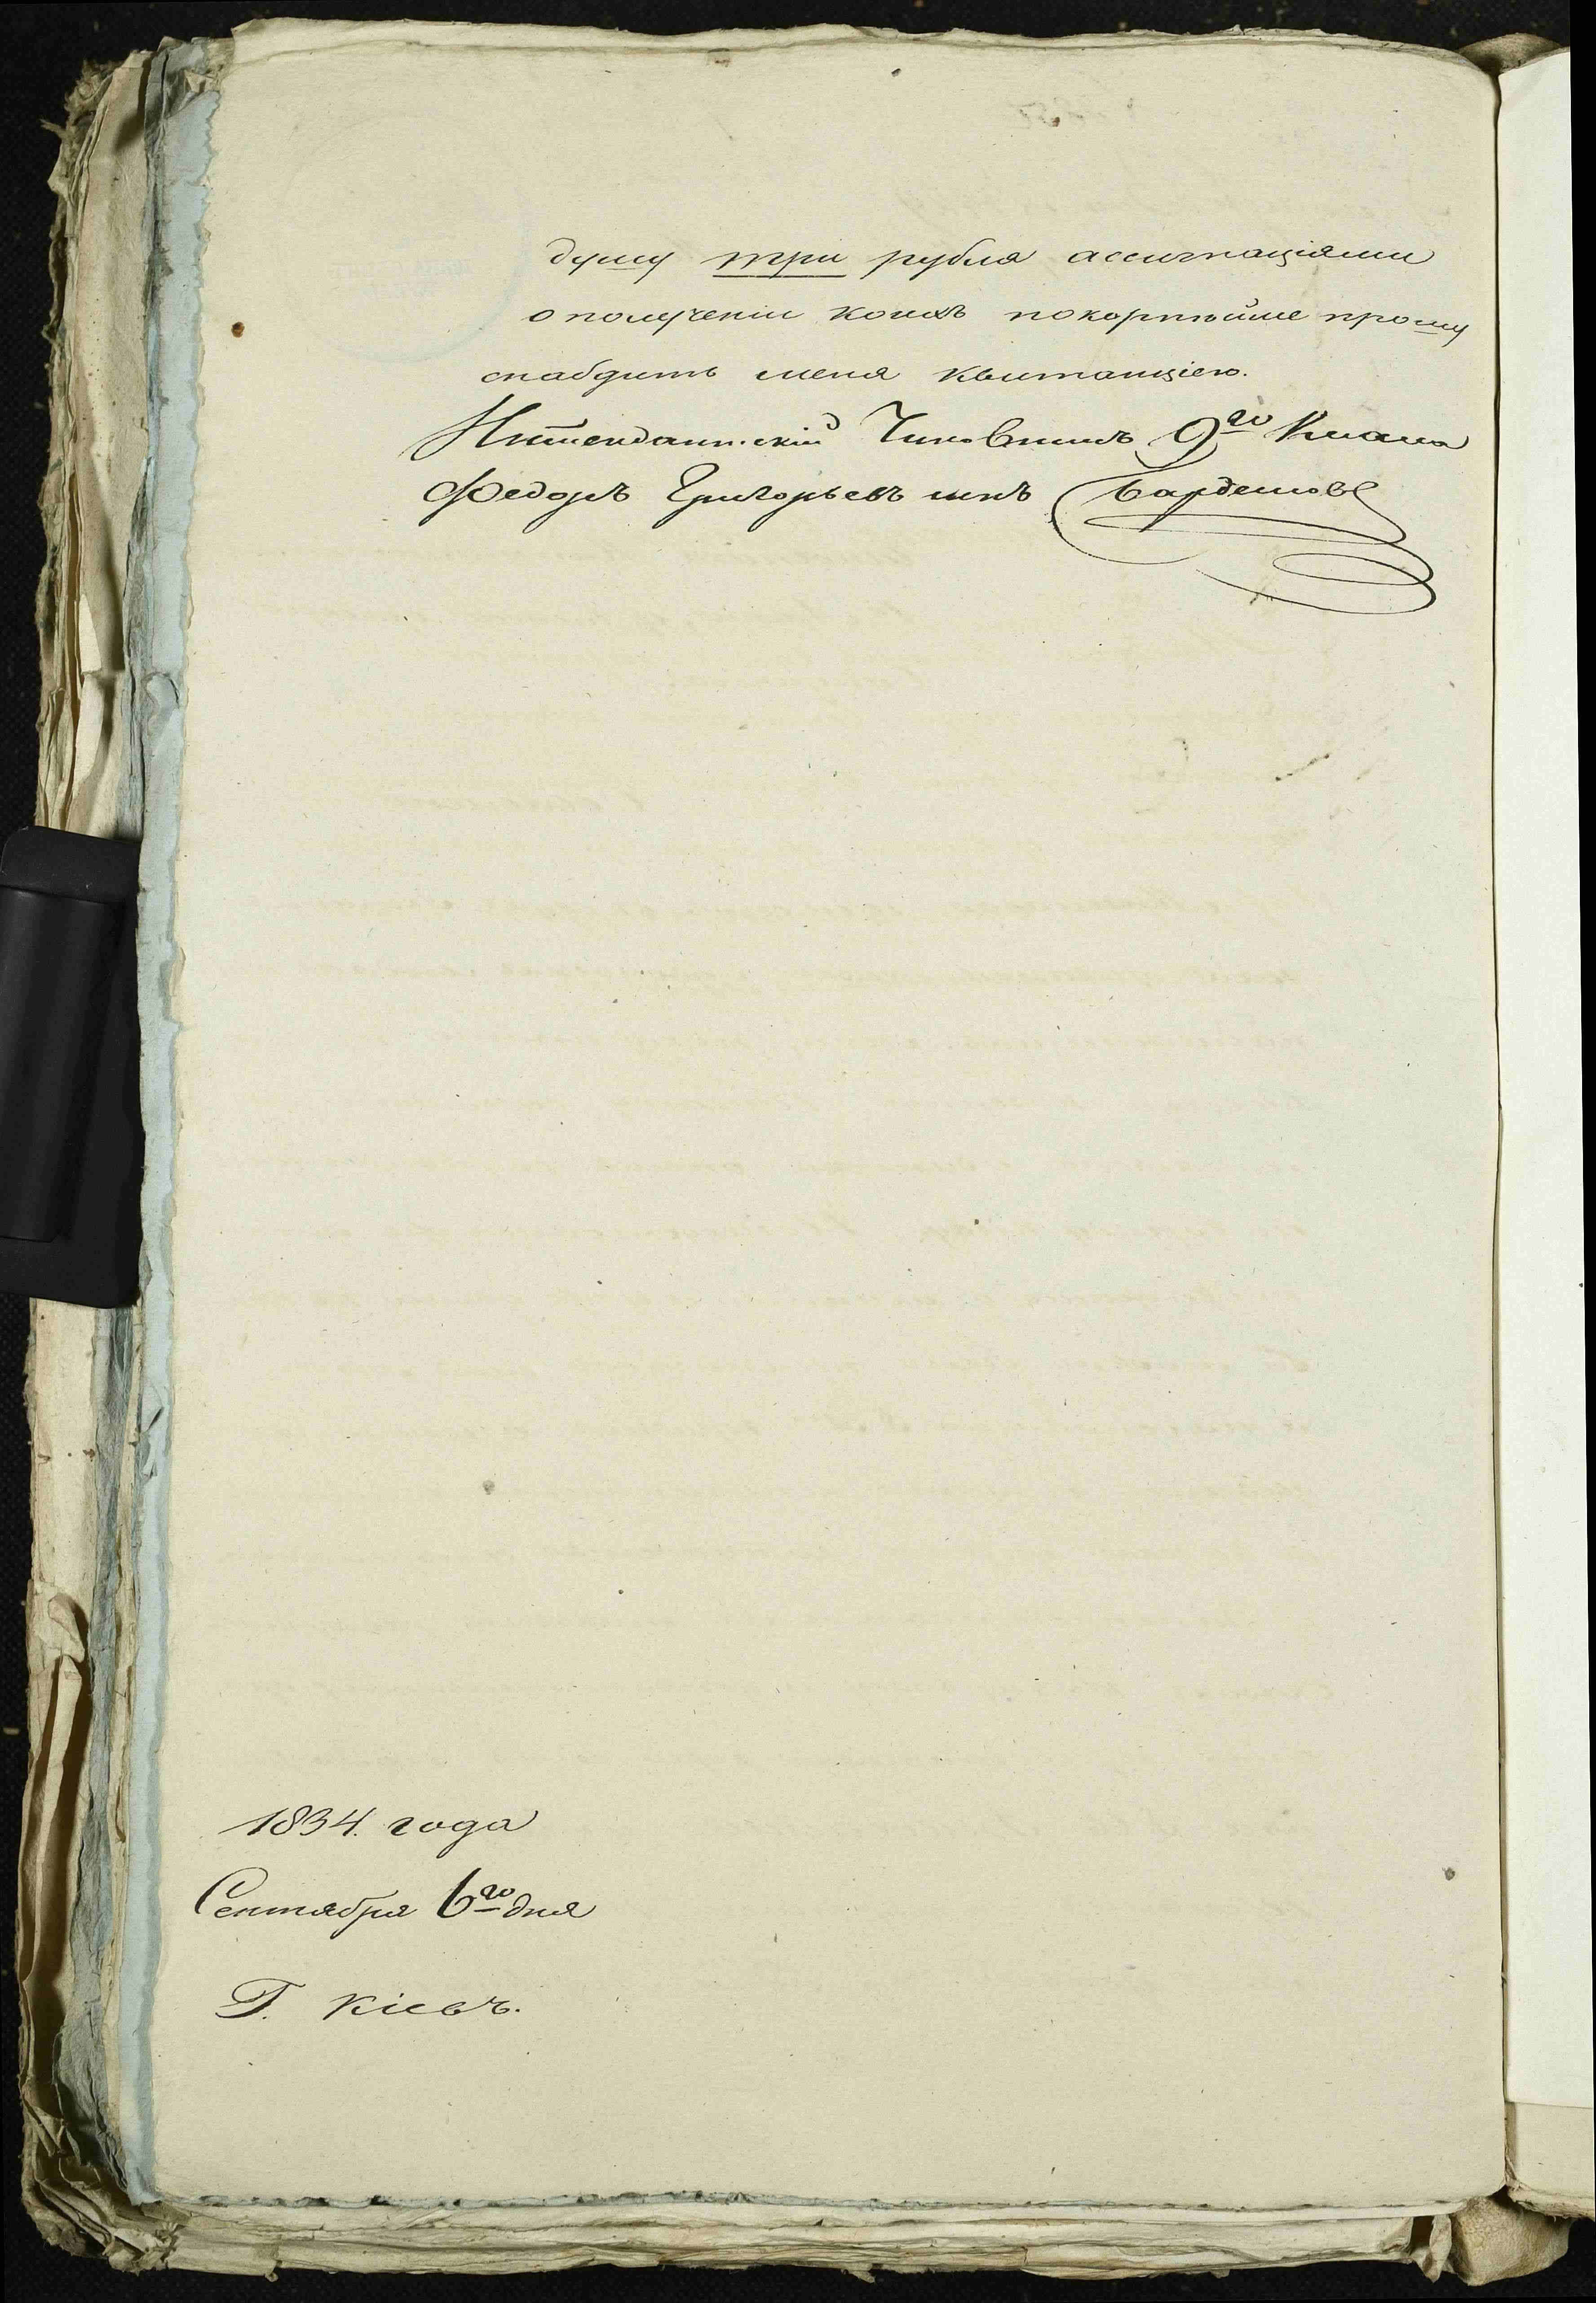 душу три рубля ассигнаціями
о полученіи коихъ покорнѣйше прошу
снабдить меня квитанціею.
Интендантскій Чиновникъ 9го Класа
Федоръ Григорьевъ сынъ
1834. года
Сентября 6го дня
Г. Кіевъ.